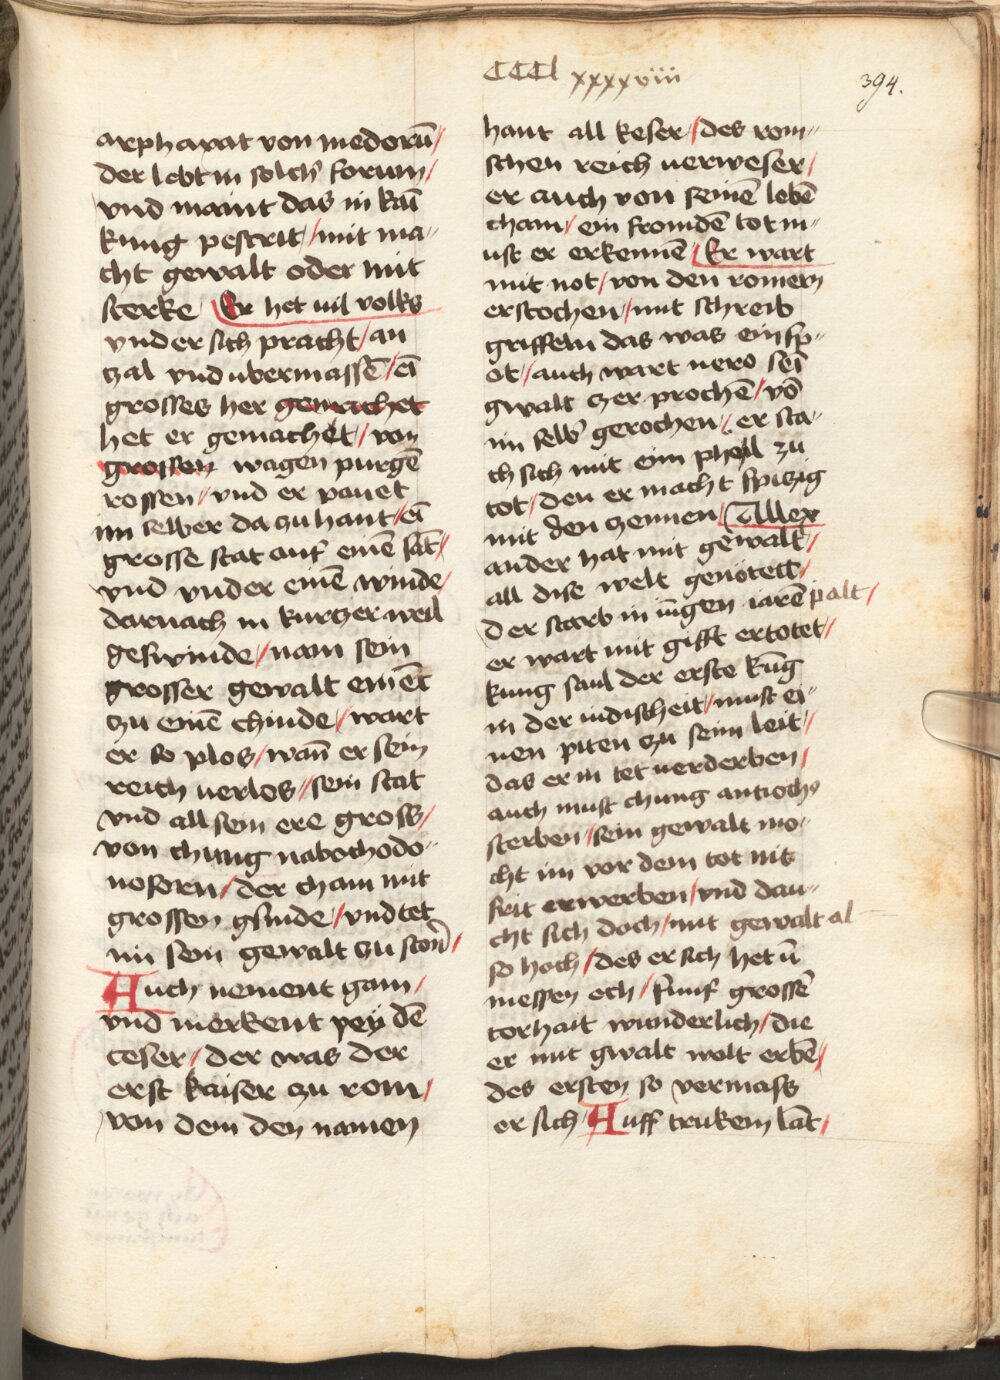 CCCl xxxxviii
394.
arphaxat von medorū/
der lebt in solch' forum/
vnd maint das in kaī
kung pestrit/mit ma-
cht gewalt oder mit
sterke Er het uil volks
vnd er sich pracht/an
zal vnd ubermassē/eī
grosses her gemachet
het er gemachet/von
grossen wagen purgē
rossen/vnd er pauet
im selber da zu hant/eī
grosse stat auf einē sāt/
vnd vnder einē winde/
darnach in kurczer weil
geswinde/nam sein
grosser gewalt ein ēt
zu einē chinde/wart
er so plos/wañ er sein
reich uerlos/sein stat
vnd all sein ere gross/
von chung nabochodo-
nosorn/der cham mit
grossen gsinde/vnd tet
im sein gewalt zu storn/
Auch nement gam/
vnd merkent pey dē
ceser/der was der
erst kaiser zu rom/
von dem den namen
hant all keser/des rom-
schen reich uerweser/
er auch von seinē lebē
cham/ein fromdē tot m-
ust er erkennē/Er wart
mit not/von den romern
erstochen/mit schreib
griffeln das was ein sp-
ot/auch wart nero seī
gwalt zer prochē/vō
im selb' gerochen/er sta-
ch sich mit eim pheil zu
tot/den er macht spiczig
mit den zennen/Allex
ander hat mit gewalt/
all dise welt genotett/
der starb in iūgen iarē palt/
er wart mit gifft ertotet/
kung saul der erste kūg
in der iudischeit/must ei-
nen piten zu seim leit/
das er in tet uerderben/
auch must chung antioch9
sterben/sein gewalt mo-
cht im vor dem tot nit
frit erwerben/vnd dau-
cht sich doch/mit gewalt al
so hoch/des er sich het ū
messen och/funf grossē
torhait wunderlich/die
er mit gwalt wolt erbē/
des ersten so vermass
er sich/Auff trukem lāt/